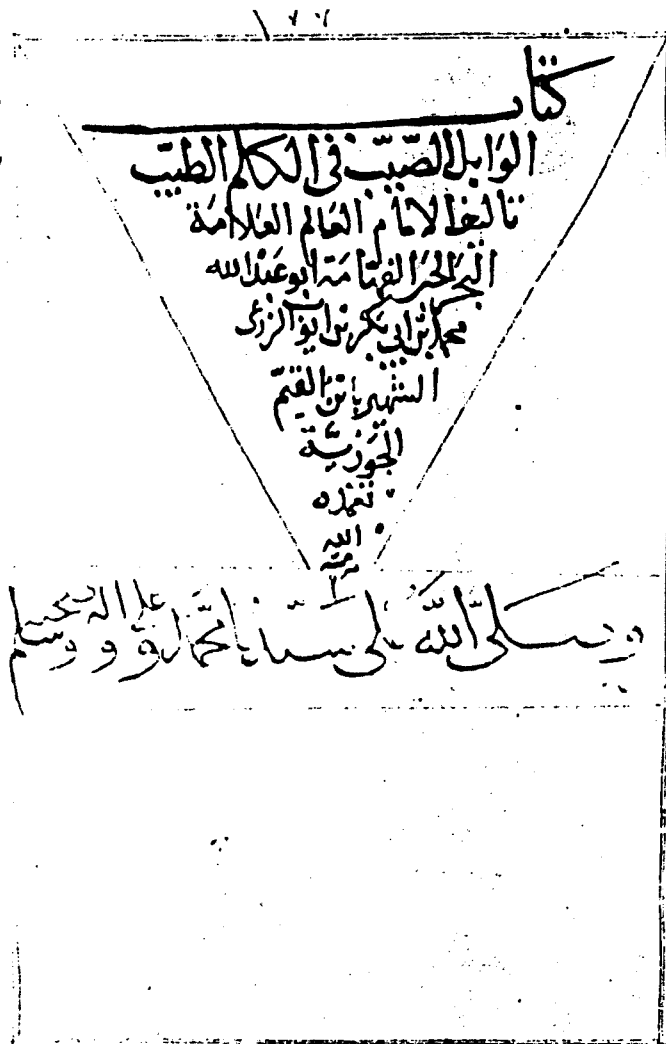 كتاب
الوابل الصيّب في الكلم الطيّب
تاليف الامام العالم العلامة
البحر الحبر الفهامة ابو عبد الله
محمد ابن ابي بكر بن ايوب الزرعى
الشهير بابن القيّم
الجوزيّة
تغمده
الله
برحمته
وصلى الله على سيدنا محمد وعلى اله وصحبه وسلم